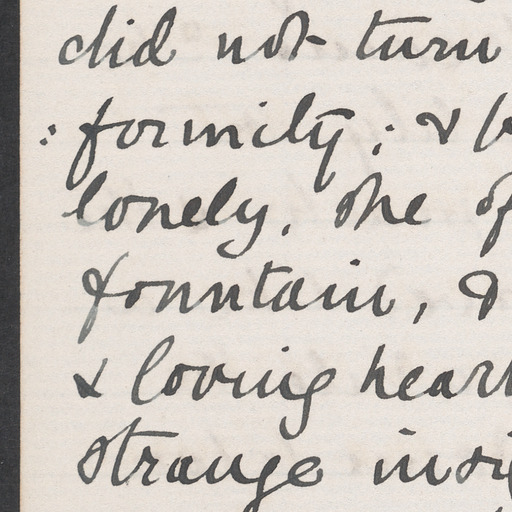 did not turn
:formity; & b
lonely, she of
fountain, &
& loving heart
strange insi